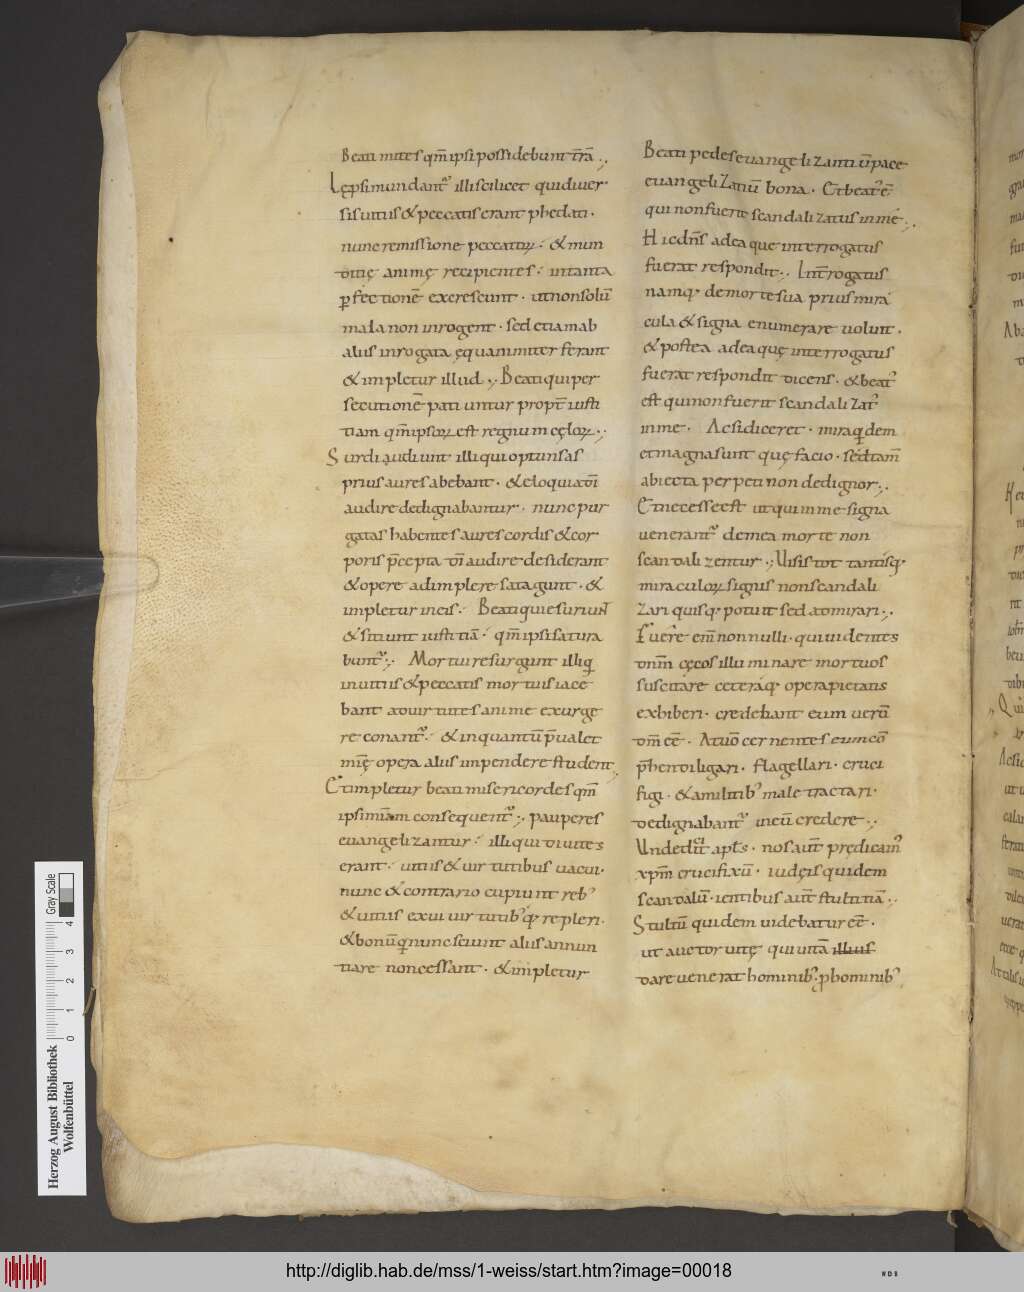 Beati mites qm̄ ipsi possidebunt t̄rā.,
Lępsi mundant᷒ illi scilicet qui diver
sis vitiis & peccatis erant p̄bedati.
nunc remissione peccatoꝝ. & mun
ditię animę recipientes. in tanta
ꝑfectionē excrescunt. ut non solū
mala non inrogent. sed etiam ab
aliis inrogata ęquanimiter ferant
& impletur illud.,. Beati qui per
secutionē patiuntur propt̄ iusti
tiam qm̄ ipsoꝝ est regnum cęloꝝ.,
Surdi audiunt illi qui optunsas
prius aures abebant. & eloquia dī
audire dedignabantur. nunc pur
gatas habentes aures cordis & cor
poris p̄cepta dī audire desiderant
& opere adimplere satagunt. &
impletur in eis. Beati qui esuriunt
& sitiunt iustitiā. qm̄ ipsi satura
bunt᷒.,. Mortui resurgunt illi qui
in vitiis & peccatis mortuis iace
bant ad virtutes anime exurge
re conant᷒. & in quantū p̄ualet
mīę opera aliis inpendere student.,
Et impletur beati misericordes qm̄
ipsi misam consequent᷒.,. pauperes
euangelizantur. illi qui divites
erant. vitiis & virtutibus vacui.
nunc & contrario cupiunt reb᷒
& vitiis exui virtutib᷒ q; repleri.
& bonū qd nunc sciunt aliis annun
tiare non cessant. & impletur
Beati pedes euangelizantiū pace
euangelizantiū bona. Et beat᷒ ē
qui non fuerit scandalizatus in me.,.
Hic dn̄s ad ea que interrogatus
fuerat respondit.,. Int̄rogatus
namq; de morte sua prius mira
cula & signa enumerare voluit.
& postea ad ea quę interrogatus
fuerat respondit dicens. & beat᷒
est qui non fuerit scandalizat᷒
in me. Ac si diceret. mira quidem
et magna sunt quę facio. sed tam̄
abiecta perpeti non dedignor.,.
Et necesse est ut qui in me signa
venerant᷒ de mea morte non
scandalizentur.,. Visis tot tantisq;
miraculoꝝ signis non scandali
zari quisq; potuit sed admirari.,.
Fuere em̄ non nulli. qui videntes
dnm̄ cęcos illuminare mortuos
suscitare ceteraq; opera pietatis
exhiberi. credebant eum verū
dm̄ eē. At uō cernentes eum cō
p̄hendi ligari. flagellari. cruci
figi. & a militib᷒ male tractari.
dedignabant᷒ in eū credere.,.
Unde dic̄ apl̄s. nos aut̄ prędicam᷒
xp̄m crucifixū. iudęis quidem
scandalū. ientibus aut̄ stultitiā.,.
Stultū quidem videbatur eē.
ut auctor vitę qui vitā illius
dare venerat hominib᷒. p hominib᷒
Herzog August Bibliothek
Wolfenbüttel
0 1 2 3 4
Gray Scale
http://diglib.hab.de/mss/1-weiss/start.htm?image=00018